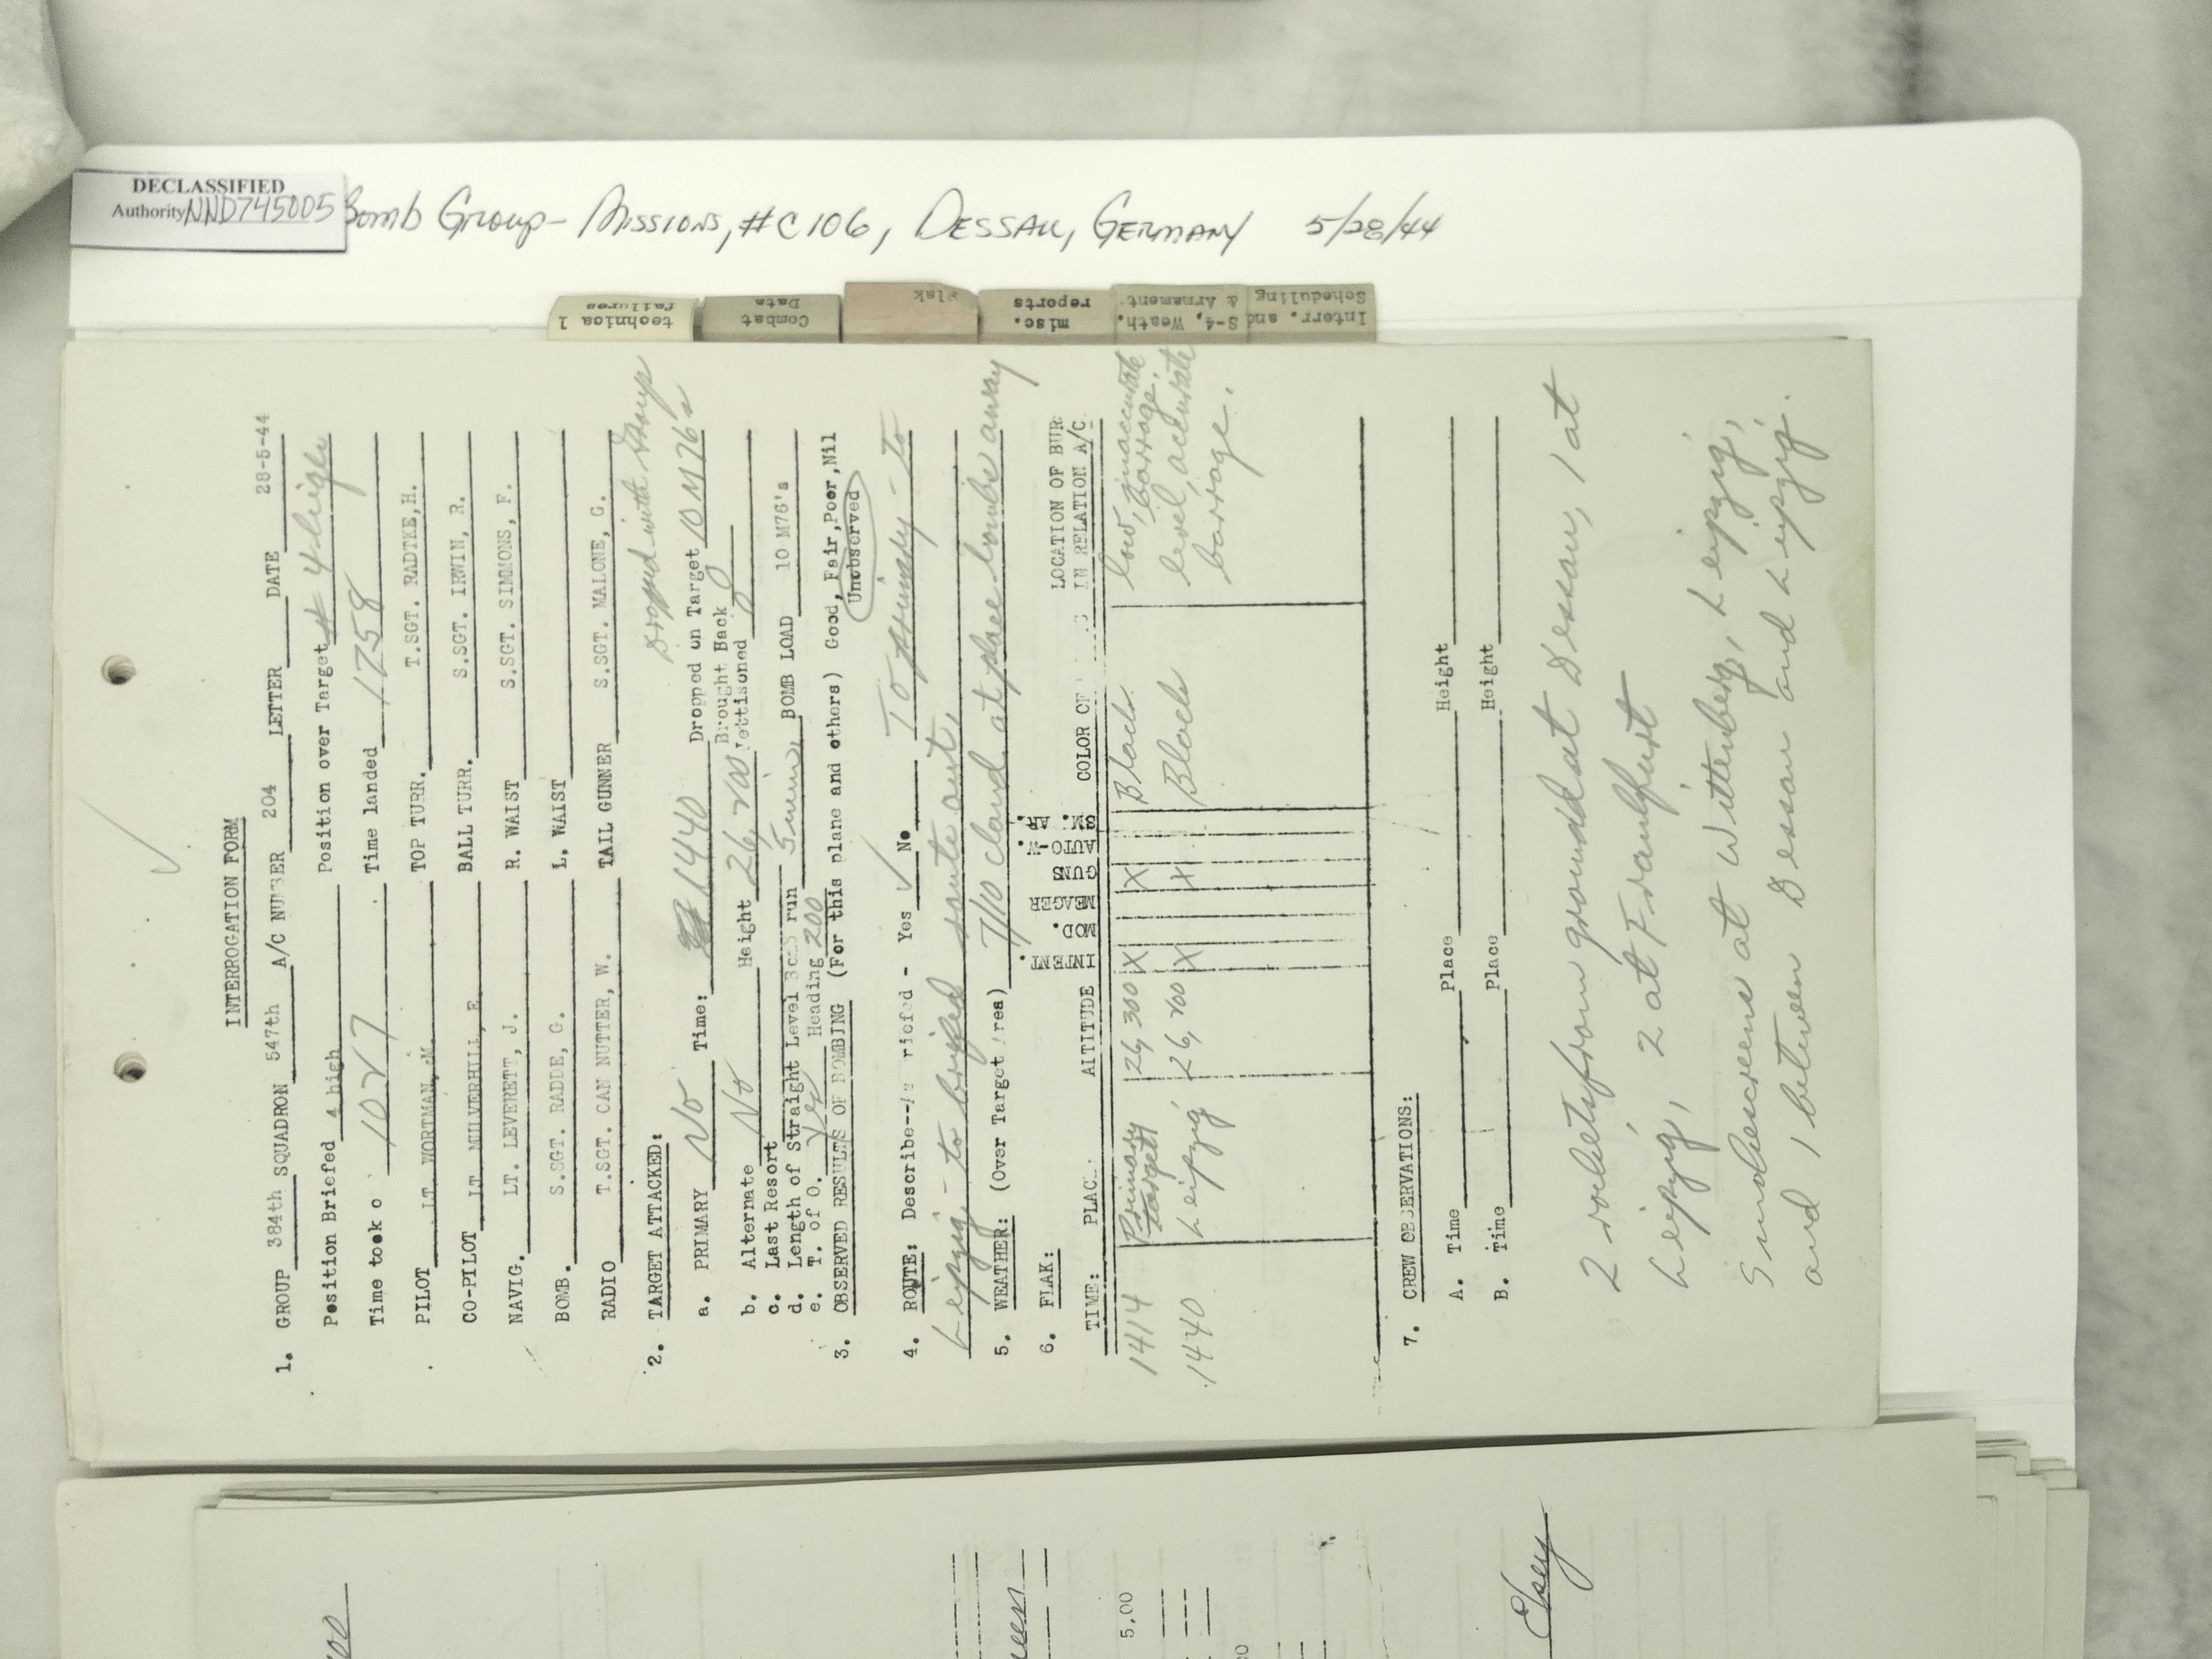 DECLASSIFIED
Authority NND745005
Bomb Group - Missions, #C106, Dessau, Germany 5/28/44
technical failures
Combat Data
Flak
misc. reports
S-4, Weath. & Armament
Interr. and Scheduling
INTERROGATION FORM
1. GROUP 384th SQUADRON 547th A/C NUMBER 204 LETTER DATE 28-5-44
Position Briefed 4 high Position over Target 4 high
Time took o 1027 Time landed 1758
PILOT LT. WORTMAN, M. TOP TURR. T.SGT. RADTKE, H.
CO-PILOT LT. MULVERHILL, E. BALL TURR. S.SGT. IRWIN, R.
NAVIG. LT. LEVERETT, J. R. WAIST S.SGT. SIMMONS, F.
BOMB. S.SGT. RADDE, C. L. WAIST
RADIO T.SGT. CAN NUTTER, W. TAIL GUNNER S.SGT. MALONE, G.
2. TARGET ATTACKED: dropped with Group
a. PRIMARY No Time: 1440 Dropped on Target 10 M76s
Brought Back 0
b. Alternate No Height 26,700 Jettisoned 0
c. Last Resort
d. Length of Straight Level Bomb run 5 min, BOMB LOAD 10 M76's
e. T. of O. Yes Heading 200
3. OBSERVED RESULTS OF BOMBING (For this plane and others) Good, Fair, Poor, Nil
Unobserved
4. ROUTE: Describe--As riefed - Yes ✓ No To primary - to
Leipzig - to briefed route out.
5. WEATHER: (Over Target Area) 7/10 cloud at place bombs away
6. FLAK:
LOCATION OF BUR
TIME: PLAC ALTITUDE INTENT. MOD. MEAGER GUNS AUTO-W. SM. AR. COLOR OF IN RELATION A/C
1414 Primary target 26,300 X X Black low, inaccurate barrage.
1440 Leipzig 26,700 X X Black level, accurate barrage.
7. CREW OBSERVATIONS:
A. Time Place Height
B. Time Place Height
2 rockets from ground at Dessau, 1 at
Leipzig, 2 at Frankfurt
Smokescreens at Wittenberg, Leipzig,
and 1 between Dessau and Leipzig.
5.00
Elsey